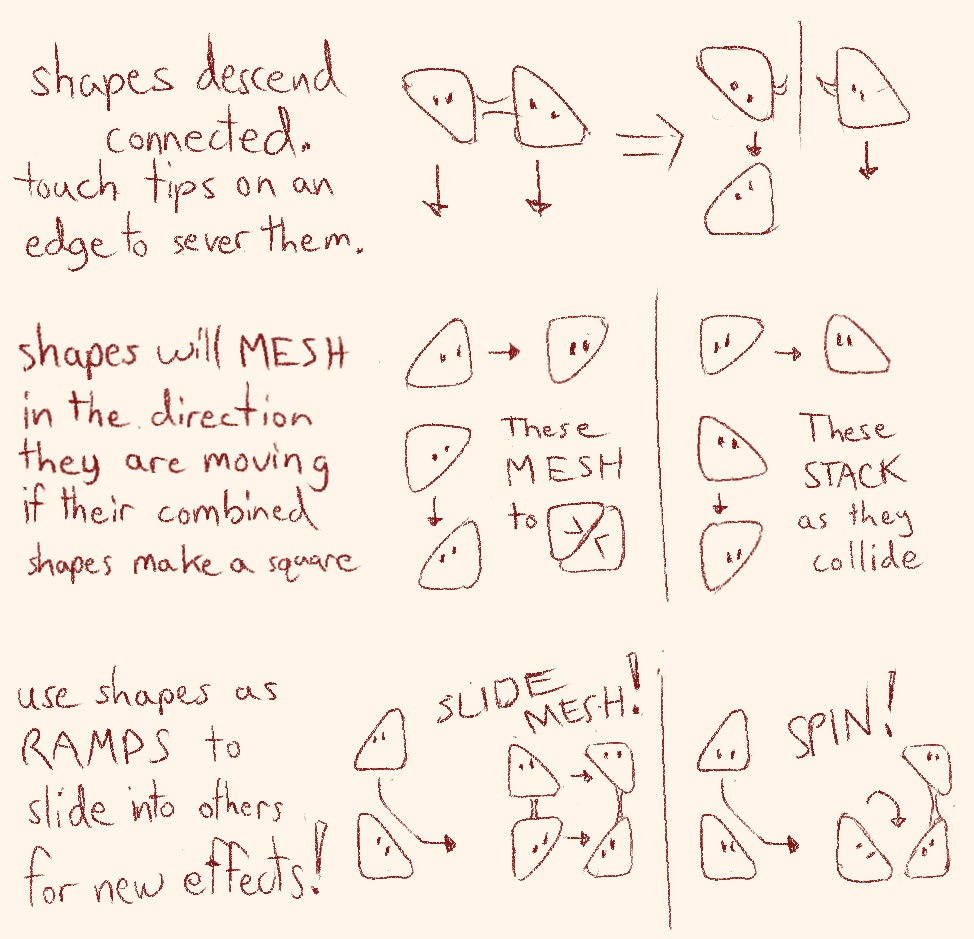 shapes descend
connected.
touch tips on an
edge to sever them.
shapes will MESH
in the direction
they are moving
if their combined
shapes make a square
These
MESH
to
These
STACK
as they
collide
use shapes as
RAMPS to
slide into others
for new effects!
SLIDE
MESH!
SPIN!